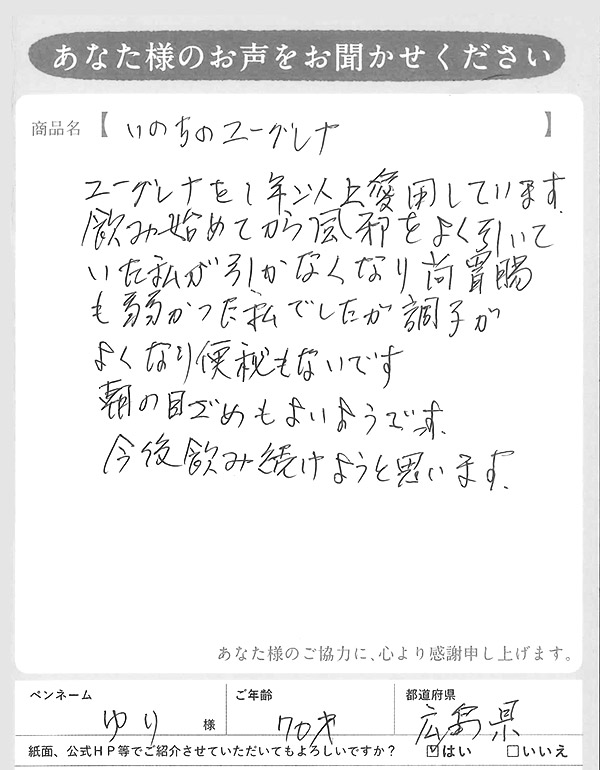 あなた様のお声をお聞かせください
商品名 【 いのちのユーグレナ 】
ユーグレナを1年以上愛用しています。
飲み始めてから風邪をよく引いて
いた私が引かなくなり尚胃腸
も弱かった私でしたが調子が
よくなり便秘もないです
朝の目ざめもよいようです。
今後飲み続けようと思います。
あなた様のご協力に、心より感謝申し上げます。
ペンネーム ご年齢 都道府県
ゆり 様 70才 広島県
紙面、公式HP等でご紹介させていただいてもよろしいですか？ ☑はい □いいえ